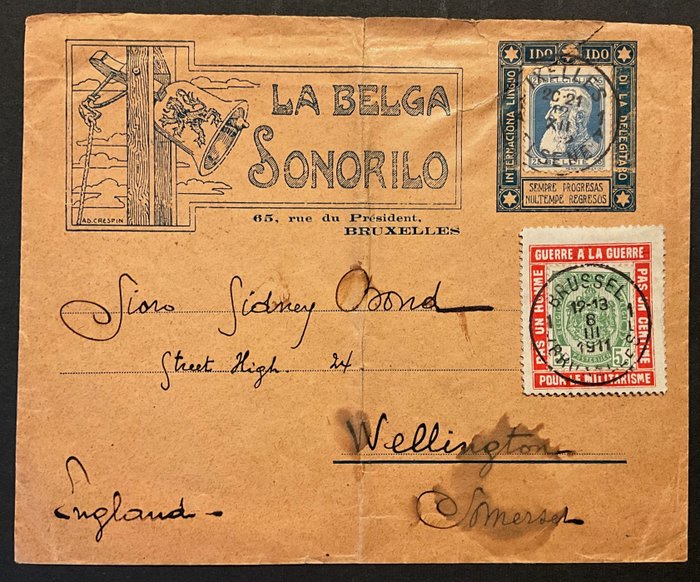 LA BELGA
SONORILO
AD. CRESPIN
65, rue du Président,
BRUXELLES
IDO IDO
INTERNACIONA LINGUO
DI LA DELEGITARO
SEMPRE PROGRESAS
NULTEMPE REGRESOS
GUERRE A LA GUERRE
PAS UN HOMME
PAS UN CENTIME
POUR LE MILITARISME
BRUSSEL
12-13
6
III
1911
5
Sioro Sidney Bond
Street High. 24
Wellington
Somerset
England